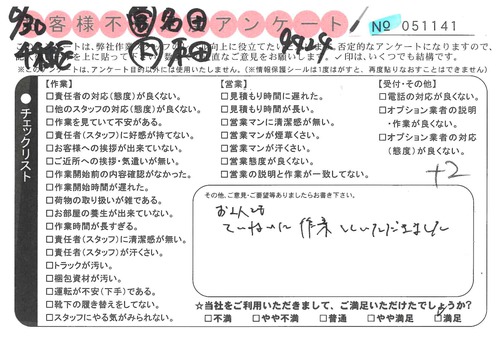 9/30
客様不満足度アンケート!
№ 051141
このアンケートは、弊社作業
※このアンケートは、アンケート目的以外には使用いたしません。(※情報保護シールは1度はがすと、再度貼りなおすことはできません)
チェックリスト
【作業】
□責任者の対応(態度)が良くない。
□他のスタッフの対応(態度)が良くない。
□作業を見ていて不安がある。
□責任者(スタッフ)に好感が持てない。
□お客様への挨拶が出来ていない。
□ご近所への挨拶・気遣いが無い。
□作業開始前の内容確認がなかった。
□作業開始時間が遅れた。
□荷物の取り扱いが雑である。
□お部屋の養生が出来ていない。
□作業時間が長すぎる。
□責任者(スタッフ)に清潔感が無い。
□責任者(スタッフ)が汗くさい。
□トラックが汚い。
□梱包資材が汚い。
□運転が不安(下手)である。
□靴下の履き替えをしてない。
□スタッフにやる気がみられない。
【営業】
□見積もり時間に遅れた。
□見積もり時間が長い。
□営業マンに清潔感が無い。
□営業マンが煙草くさい。
□営業マンが汗くさい。
□営業態度が良くない。
□営業の説明と作業が一致してない。
【受付・その他】
□電話の対応が良くない。
□オプション業者の説明
・作業が良くない。
□オプション業者の対応
(態度)が良くない。
+2
その他、ご意見・ご要望等ありましたらお書き下さい。
お2人とも
ていねいに 作業 していただきました
☆当社をご利用いただきまして、ご満足いただけたでしょうか?
□不満 □やや不満 □普通 □やや満足 □満足